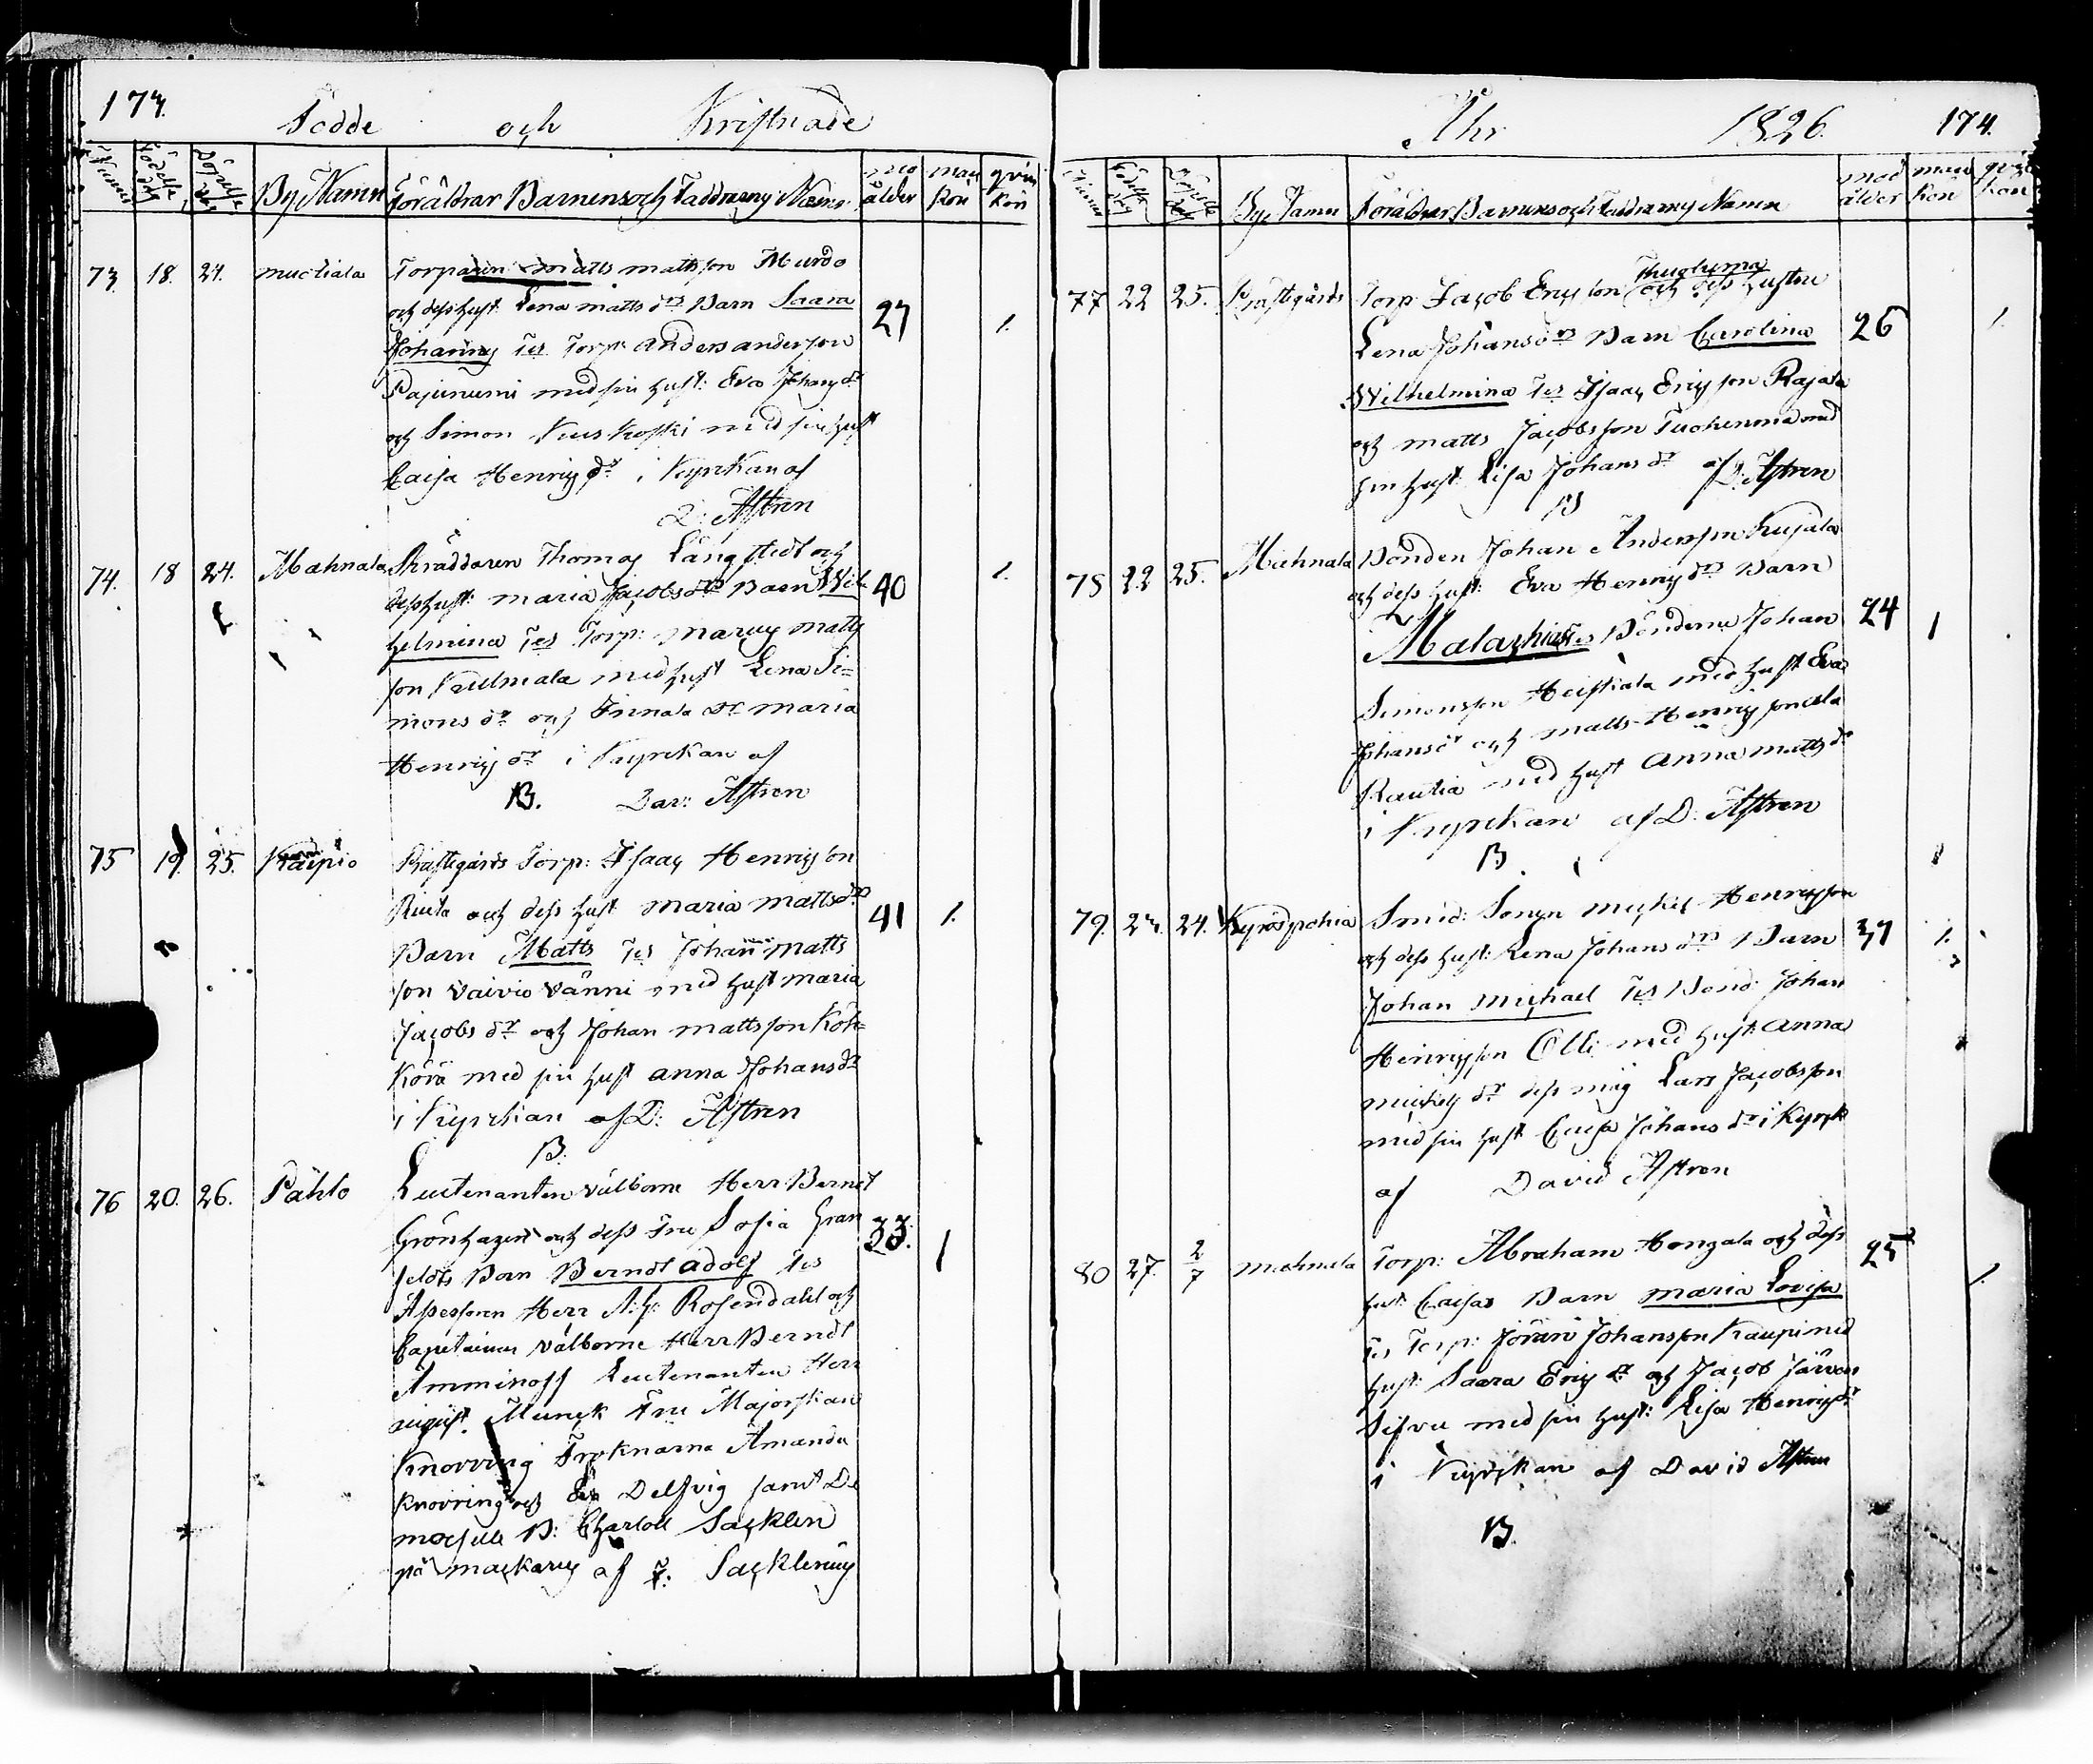 173.
Födde och Kristnade
Numer Födelse dag Döpelse dag By Namn Föräldrar Barnens och Faddrarnes Namn mod ålder man kön qvin kön
73. 18. 24. Muctiala Torparen Matts Mattsson Murdo
och dess hust: Lena Matts drs Barn Saara 27 1.
Johanna Tes Torp: Anders Andersson
Pajuniemi med sin hust: Eva Johans dr
och Simon Kuuskoski med sin hust
Caisa Henrics dr i Kyrckan af
D: Astren
74. 18 24. Mahnala Skräddaren Thomas Långstedt och
dess hust: Maria Jacobs drs Barn Wil 40 1.
helmina Tes Torp: Marcus Matts
son Kulmala med hust Lena Si=
mons dr och Innala dr Maria
Henrics dr i Kyrckan af
B. Dav: Astren
75 19. 25. Kaipio Prästgårds Torp: Isaac Henricsson
Riuta och dess hust Maria Matts drs 41 1.
Barn Matts Tes Johan Matts
son Vaivio Vänni med hust Maria
Jacobs dr och Johan Mattsson Koh=
Körä med sin hust Anna Johans dr
i Kyrckan af D: Astren
B.
76 20. 26. Pählo Lieutenanten Välborne Herr Berndt
Grönhagen och dess Fru Sofia Gran 33. 1
feldts Barn Berndt Adolf Tes
Assessoren Herr A: G: Rosendahl och
Capitainen Välborne Herr Berndt
Amminoff Leutenanten Herr
August Munck Fru Majorskan
Knorring Fröknarna Amanda
Knorring och Eva Delfvig samt De
moiselle B: Charlott Sacklen
på Mackarus af F: Sacklenius
Åhr 1826. 174.
Numer Födelse dag Döpelse dag By Namn Föräldrar Barnens och Faddrarnes Namn mod ålder man kön qvin kön
77 22 25. Prästgårds Torp Jacob Ericsson och dess hustru
Lena Johans drs Barn Carolina 26 1.
Wilhelmina Tes Isaac Ericsson Rajala
och Matts Jacobsson Tuohenma med
sin hust: Lisa Johans dr af D: Astren
B
78 22 25. Miehnala Bonden Johan Andersson Kujala
och dess hust: Eva Henrics drs Barn
Malachias Tes Bönderna Johan 24 1
Simonsson Heiskala med hust Eva
Johans dr och Matts Henricsson ala
Rautia med hust Anna Matts dr
i Kyrckan af D: Astren
B
79. 23. 24. Kyröspohia Smid: Sonen Michel Henricsson
och dess hust: Lena Johans drs Barn 37 1.
Johan Michael Tes Bond: Johan
Henricsson Olli med hust: Anna
Michels dr dess måg Lars Jacobsson
med sin hust Caisa Johans dr i Kyrck
af David Astren
80 27. 2/7 Miehnala Torp: Abraham Hongala och dess 25
hust: Caisas Barn Maria Lovisa 1.
Tes Torp: Jöran Johansson Kaupi med
hust: Saara Erics dr och Jacob Järven
Sifvu med sin hust: Lisa Henrics dr
i Kyrckan af David Astren
B.